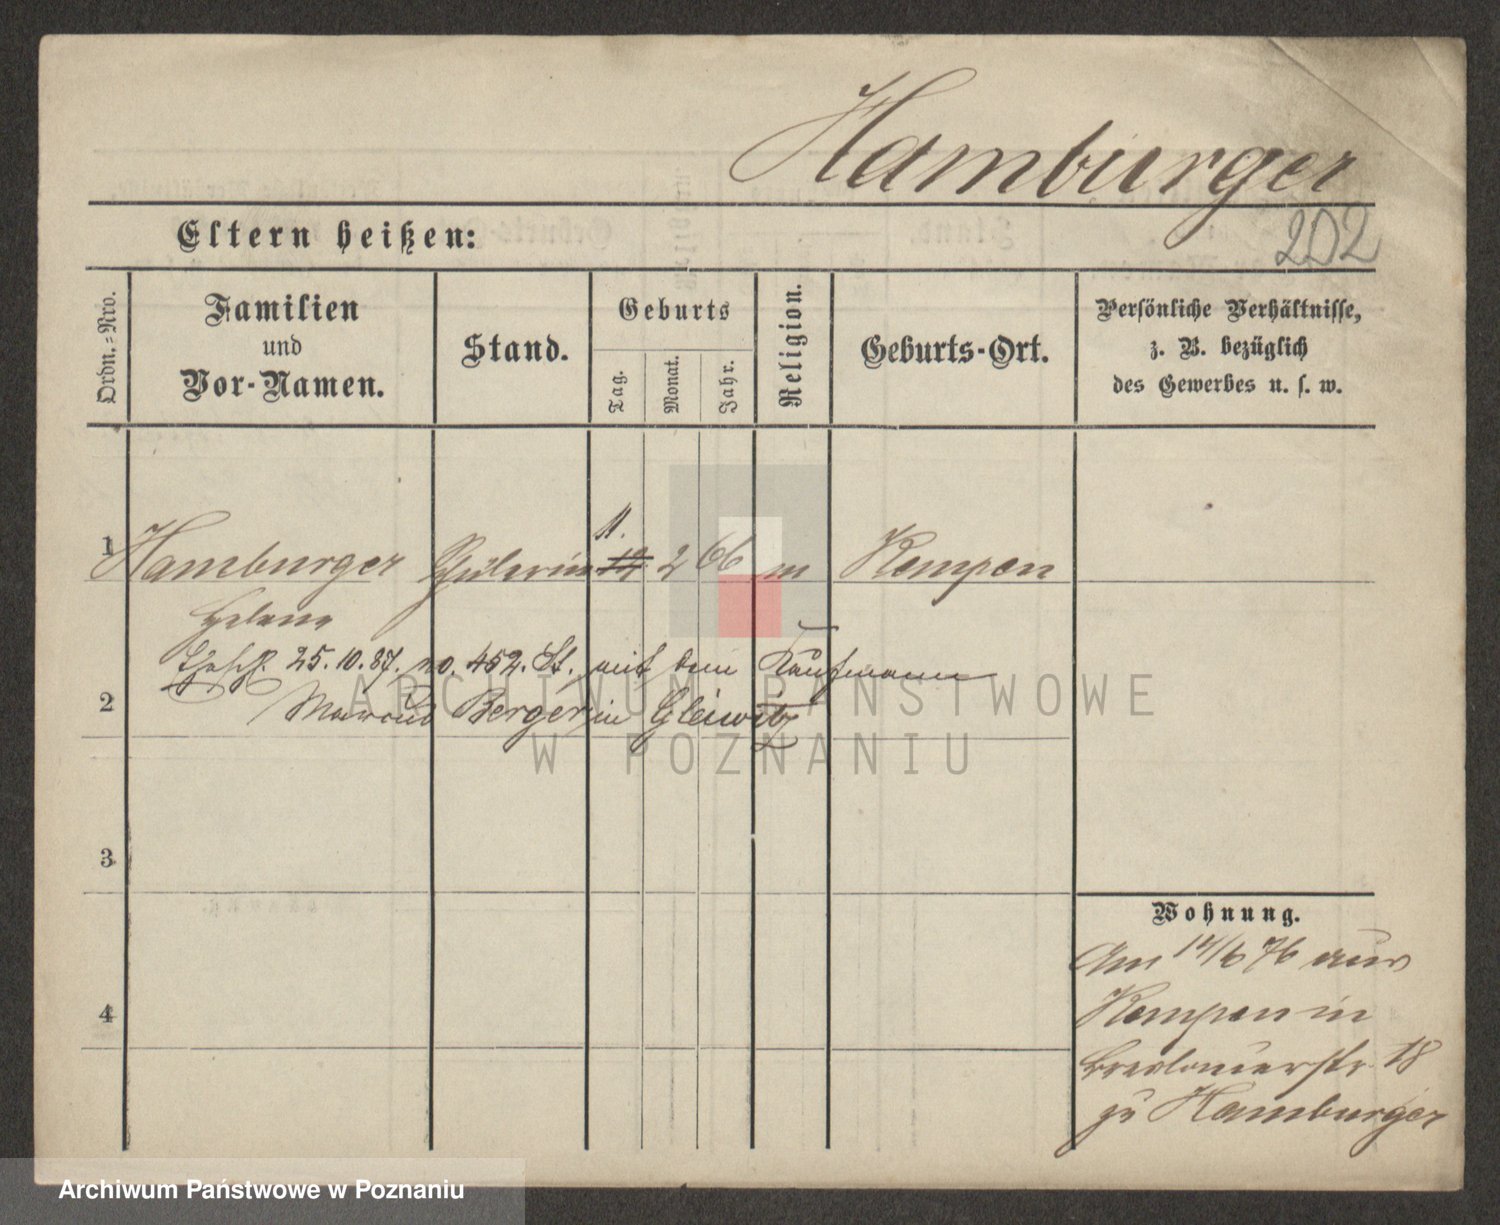 Hamburger
202
Eltern heißen:
Ordn.=Nro.
Familien
und
Vor-Namen.
Stand.
Geburts
Tag.
Monat.
Jahr.
Religion.
Geburts-Ort.
Persönliche Verhältnisse,
z. B. bezüglich
des Gewerbes u. s. w.
11.
1 Hamburger Schülerin 12 2 66 m Kempen
Helene
25.10.87. no. 452. St. mit dem Kaufmann
2 Marcus Berger in Gleiwitz
ARCHIWUM PAŃSTWOWE
W POZNANIU
3
4
Wohnung.
Am 14/6 76 aus
Kempen in
Breslauerstr 18
zu Hamburger
Archiwum Państwowe w Poznaniu